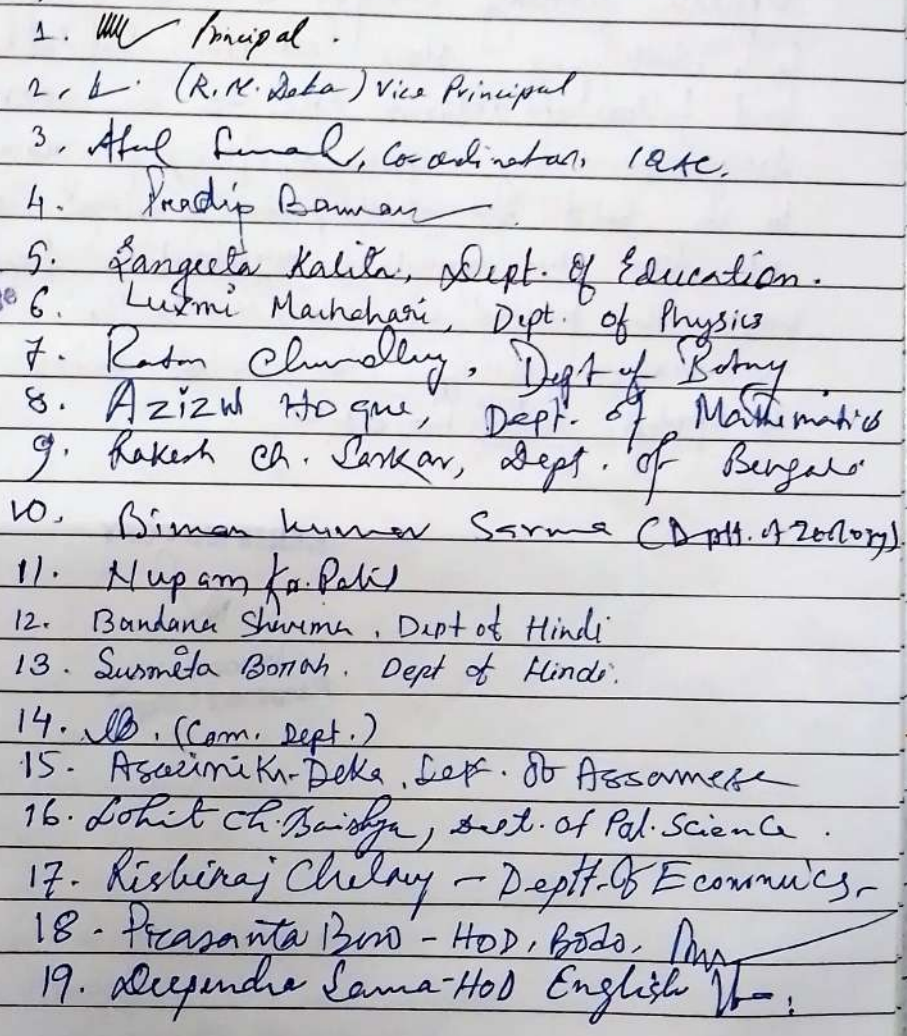 1. Principal.
2. (R.M. Deka) Vice Principal
3. Co-ordinator, IQAC.
4. Pradip Barman
5. Sangeeta Kalita, Dept. of Education.
6. Luxmi Machahari, Dept. of Physics
7. Ratan Choudhury, Dept of Botany
8. Azizul Hoque, Dept. of Mathematics
9. Rakesh Ch. Sarkar, Dept. of Bengali
10. Biman Kumar Sarma (Deptt. of Zoology)
11. Nupam Kr.
12. Bandana Sharma, Dept of Hindi
13. Susmita Borah. Dept of Hindi.
14. (Com. Dept.)
15. Aswini Kr. Deka, Dept. of Assamese
16. Lohit Ch. Baishya, Dept. of Pol. Science.
17. Rishiraj - Deptt. Of Economics.
18. Prasanta Boro - HOD, Bodo,
19. Deependra Sarma - HOD English